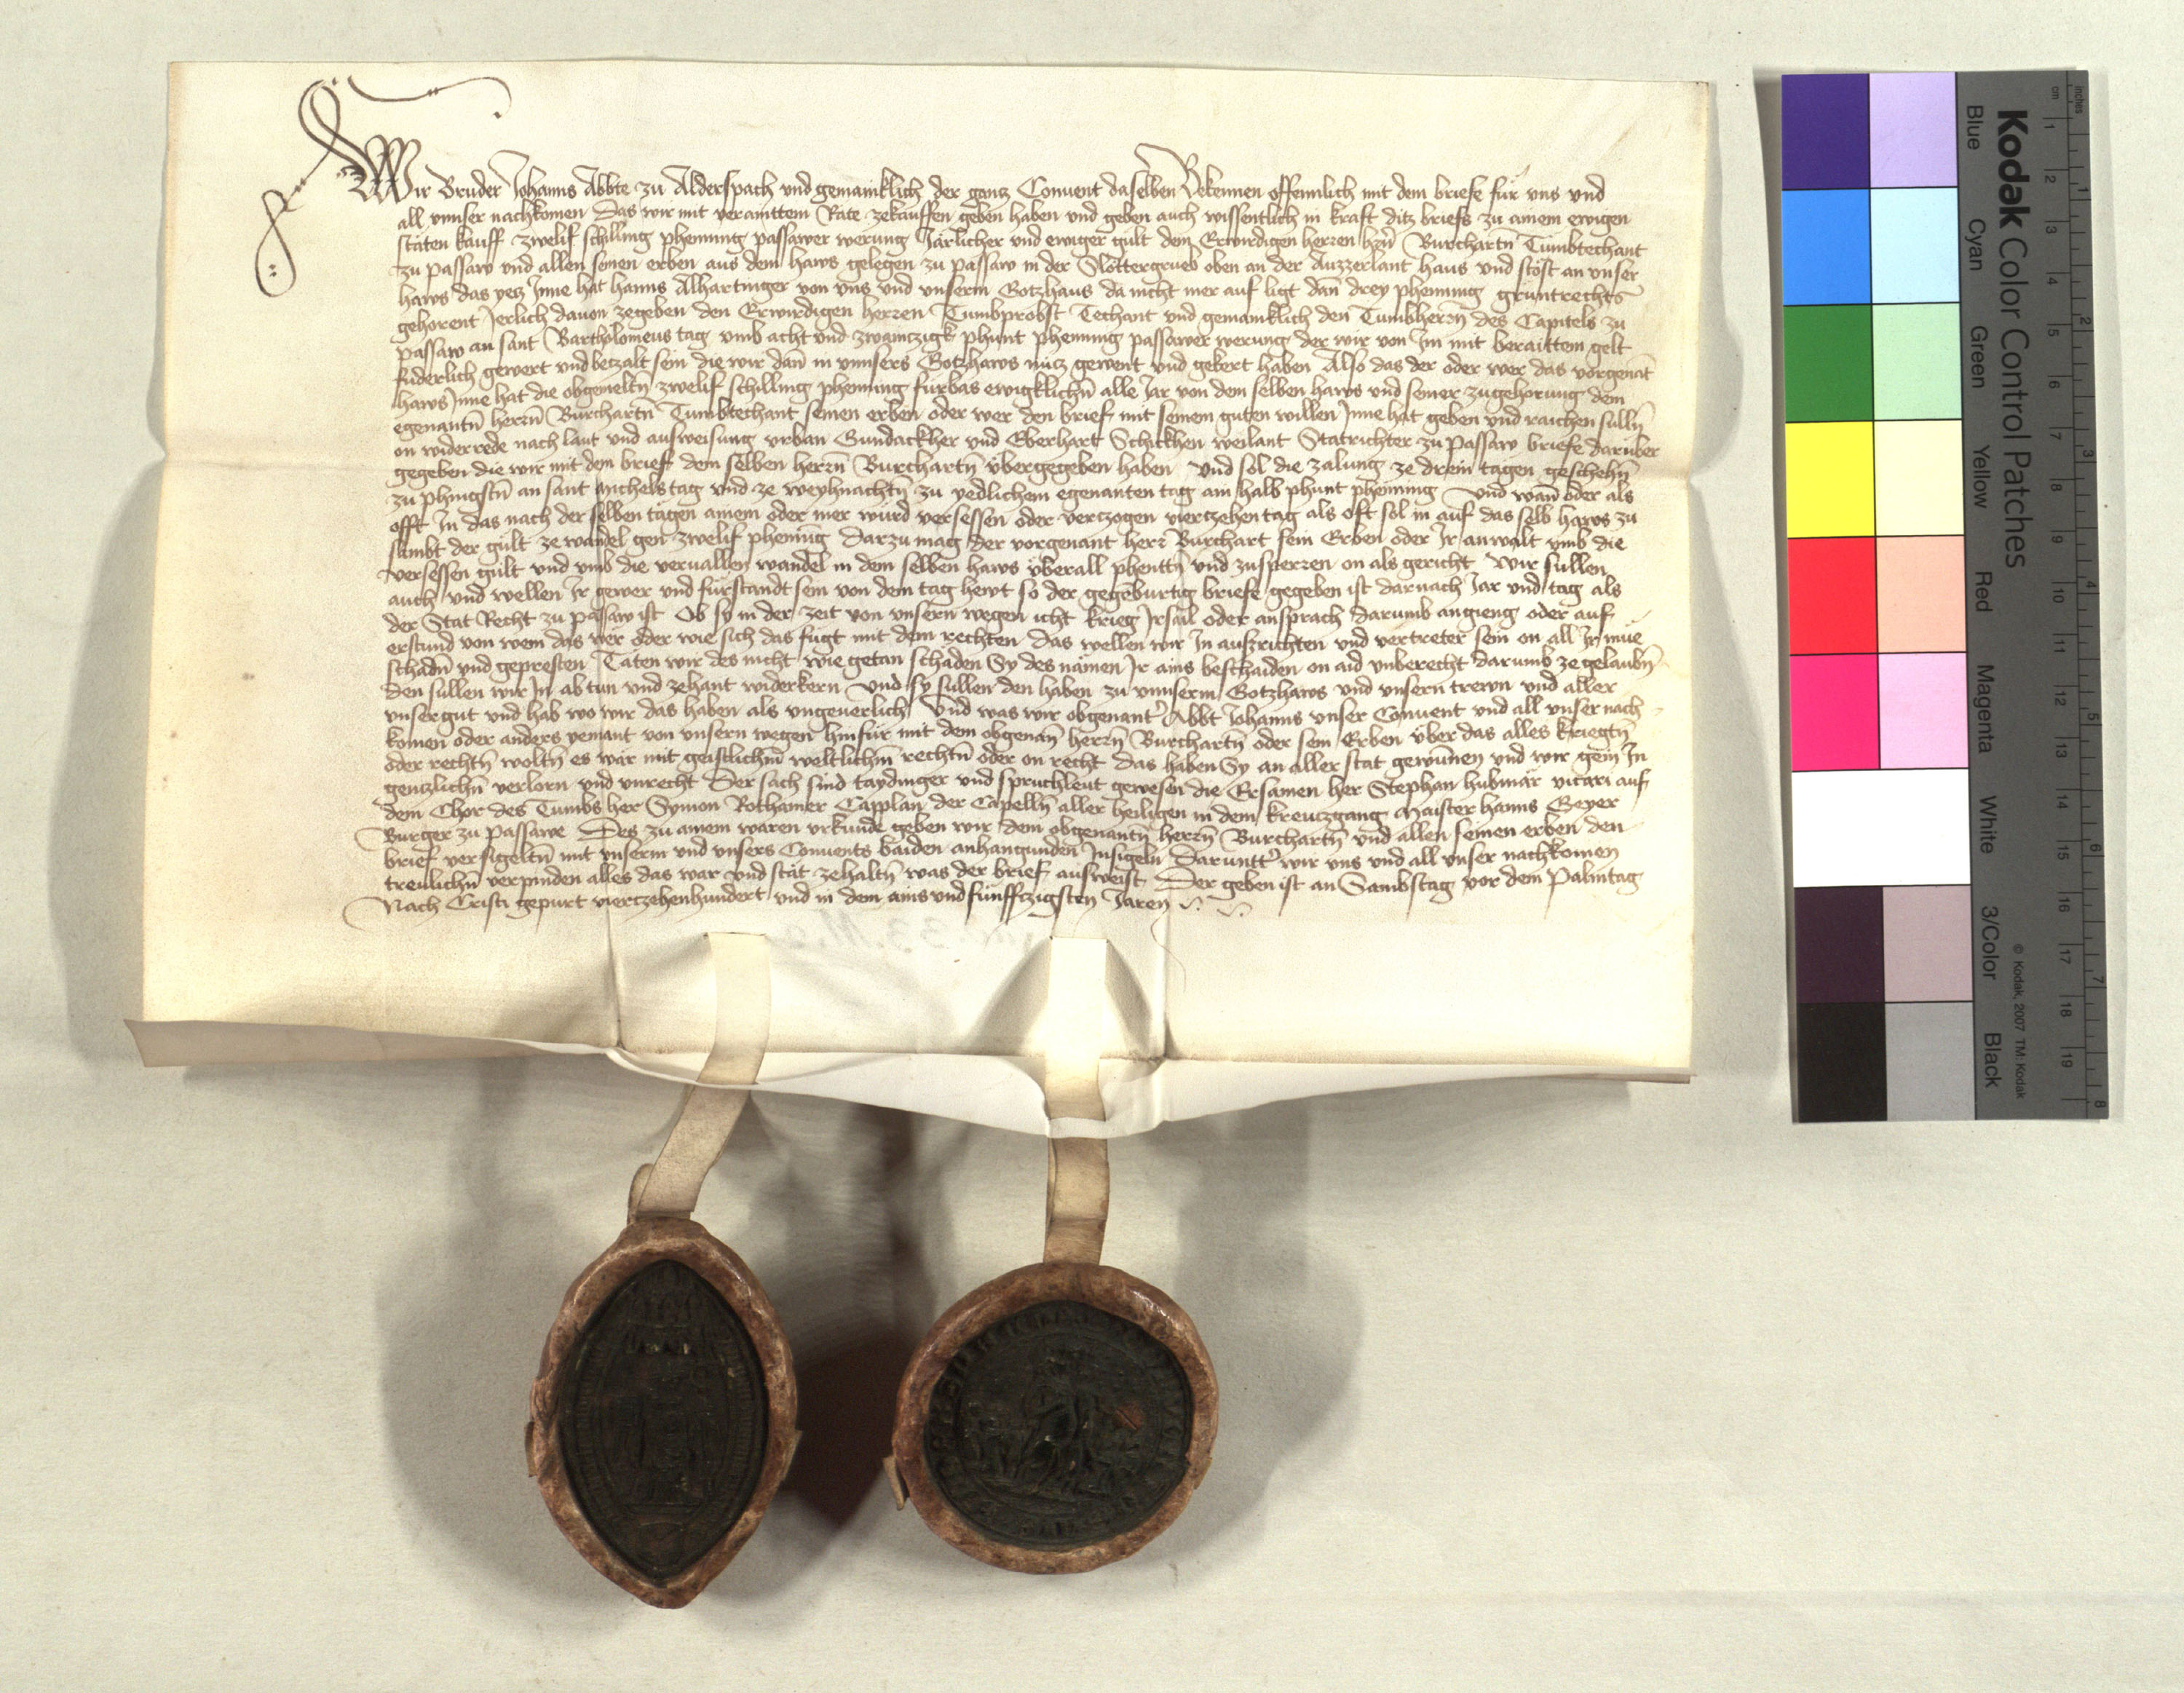 Wir Bruder Johanns Abbte zu Alderspach vnd gemainklich der ganz Conuent daselben Bekennen offennlich mit dem briefe für vns vnd
all vnnser nachkomen Das wir mit veraintem Rate zekauffen geben haben vnd geben auch wissentlich in kraft ditz briefs zu ainem ewigen
stäten kauff zwelif schilling phenning passawer werung Järlicher vnd ewiger gült dem Erwirdigen herren hern̄ Burchartn̄ Tumbtechant
zu passaw vnd allen seinen erben aus dem haws gelegen zu passaw in der Slottergrueb oben an der Auzzerlant haus vnd stöst an vnser
haws das yetz Jnne hat hanns Alhartinger von vns vnd vnserm Gotzhaus da nicht mer auf ligt dan̄ drey phenning gruntrechts
gehorent Jerlich dauon zegeben den Erwirdigen herren Tumbprobst Techant vnd gemainklich den Tumbherrn̄ des Capitels zu
passaw an sant Bartholomeus tag vmb acht vnd zwaintzigk phunt phenning passawer werung der wir von Jm mit beraittem gelt
fuderlich gewert vnd betzalt sein die wir dan̄ in vnnsers Gotzhaws nutz gewent vnd gekert haben Also das der oder wer das vorgenāt
haws Jnne hat die obgemeltn̄ zwelif schilling phenning furbas ewigklichn̄ alle Jar von dem selben haws vnd seiner zugehorung dem
egenantn̄ herrn̄ Burchartn̄ Tumbtechant seinen erben oder wer den brief mit seinem guten willen Jnne hat geben vnd raichen sulln̄
on widerrede nach laut vnd ausweisung vrban Gundackher vnd Eberhart Schickhen weilant Statrichter zu passaw briefe darüber
gegeben die wir mit dem brief dem selben herrn̄ Burchartn̄ übergegeben haben Vnd sol die zalung ze drein tagen geschehn̄
zu phingstn̄ an sant Michels tag vnd ze weyhnachtn̄ zu yedlichem egenanten tag ain halb phunt phenning Vnd wan̄ oder als
offt Jn das nach der selben tagen ainem oder mer wurd versessen oder vertzogen viertzehen tag als oft sol in auf das selb haws zu
sambt der gült ze wandel gen zwelif phenn̄ig Darzu mag der vorgenant herr Burchart sein Erben oder Jr anwalt vmb die
versessen gült vnd vmb die veruallen wandel in dem selben haws überall phentn̄ vnd zusperren on als gericht Wir sullen
auch vnd wellen Jr gewer vnd fürstandt sein von dem tag hewt so der gegēburtig briefe gegeben ist darnach Jar vnd tag als
der Stat Recht zu passaw ist Ob sy in der zeit von vnsern wegen icht krieg Jrsail oder ansprach darumb angieng oder auf
erstund von wem das wer oder wie sich das fugt mit dem rechten das wellen wir Jn ausrichten vnd vertreter sein on all Jr mue
schadn̄ vnd gepresten Täten wir des nicht wie getan schaden Sy des nämen Jr ains beschaiden on aid vnberecht darumb ze gelaubn̄
den sullen wir Jn abtun vnd zehant widerkern Vnd sy sullen den haben zu vnnserm Gotzhaws vnd vnsern trewn vnd aller
vnser gut vnd hab wo wir das haben als vngeuerlich Vnd was wir obgenant Abbt Johanns vnser Conuent vnd all vnser nach
komen oder anders yemant von vnsern wegen hinfür mit dem obgenan̄ herrn̄ Burchartn̄ oder sein Erben über das alles kriegtn̄
oder rechtn̄ woltn̄ es wär mit geistlichm̄ weltlichm̄ rechtn̄ oder on recht das haben Sy an aller stat gewūnen vnd wir gein Jn
gentzlichn̄ verlorn vnd vnrecht Der sach sind taydinger vnd spruchleut gewesen die Ersamen her Stephan hubmär vicari auf
dem Chor des Tumbs her Symon Rothamer Capplan der Capelln̄ aller heiligen in dem kreutzgang Maister hanns Geyer
Burger zu passawe Des zu ainem waren vrkunde geben wir dem obgenantn̄ herrn̄ Burchartn̄ vnd allen seinen erben den
brief versigeltn̄ mit vnserm vnd vnsers Conuents baiden anhangunden Jnsigeln Daruntt' wir vns vnd all vnser nachkomen
treulichn̄ verpinden alles das war vnd stät zehaltn̄ was der brief ausweist Der geben ist an Sambstag vor dem Palmtag
Nach Cristi gepurt viertzehenhundert vnd in dem ains vnd fünfftzigsten Jaren
Kodak Color Control Patches
Blue Cyan Green Yellow Red Magenta White 3/Color Black
© Kodak, 2007 TM: Kodak
cm 1 2 3 4 5 6 7 8 9 10 11 12 13 14 15 16 17 18 19
inches 1 2 3 4 5 6 7 8